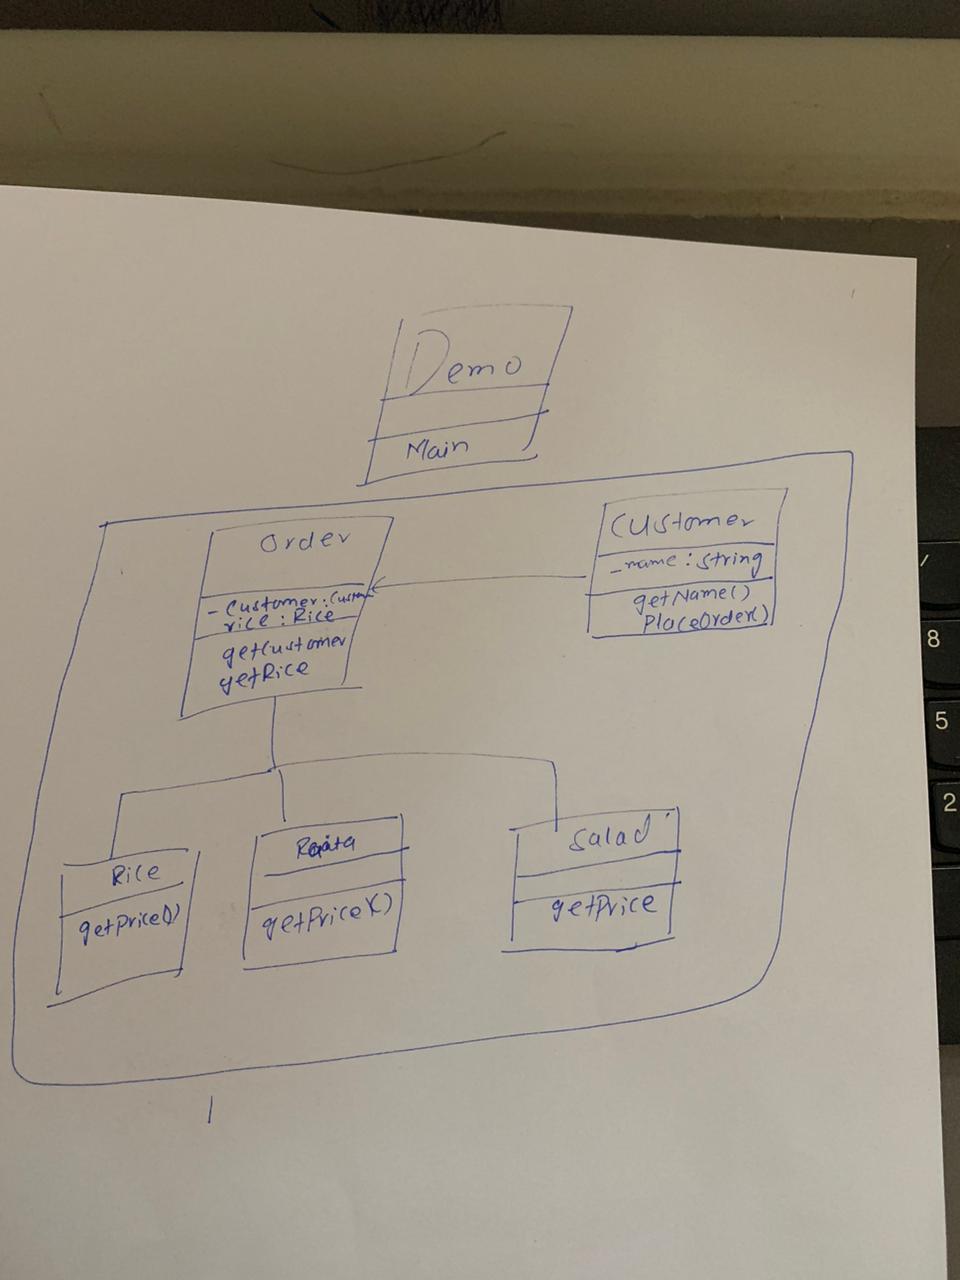 Demo
Main
Order
- Customer : Custom
rice : Rice
getCustomer
getRice
Customer
- name : String
getName()
PlaceOrder()
Rice
getPrice()
Raita
getPrice()
Salad
getPrice
/
8
5
2